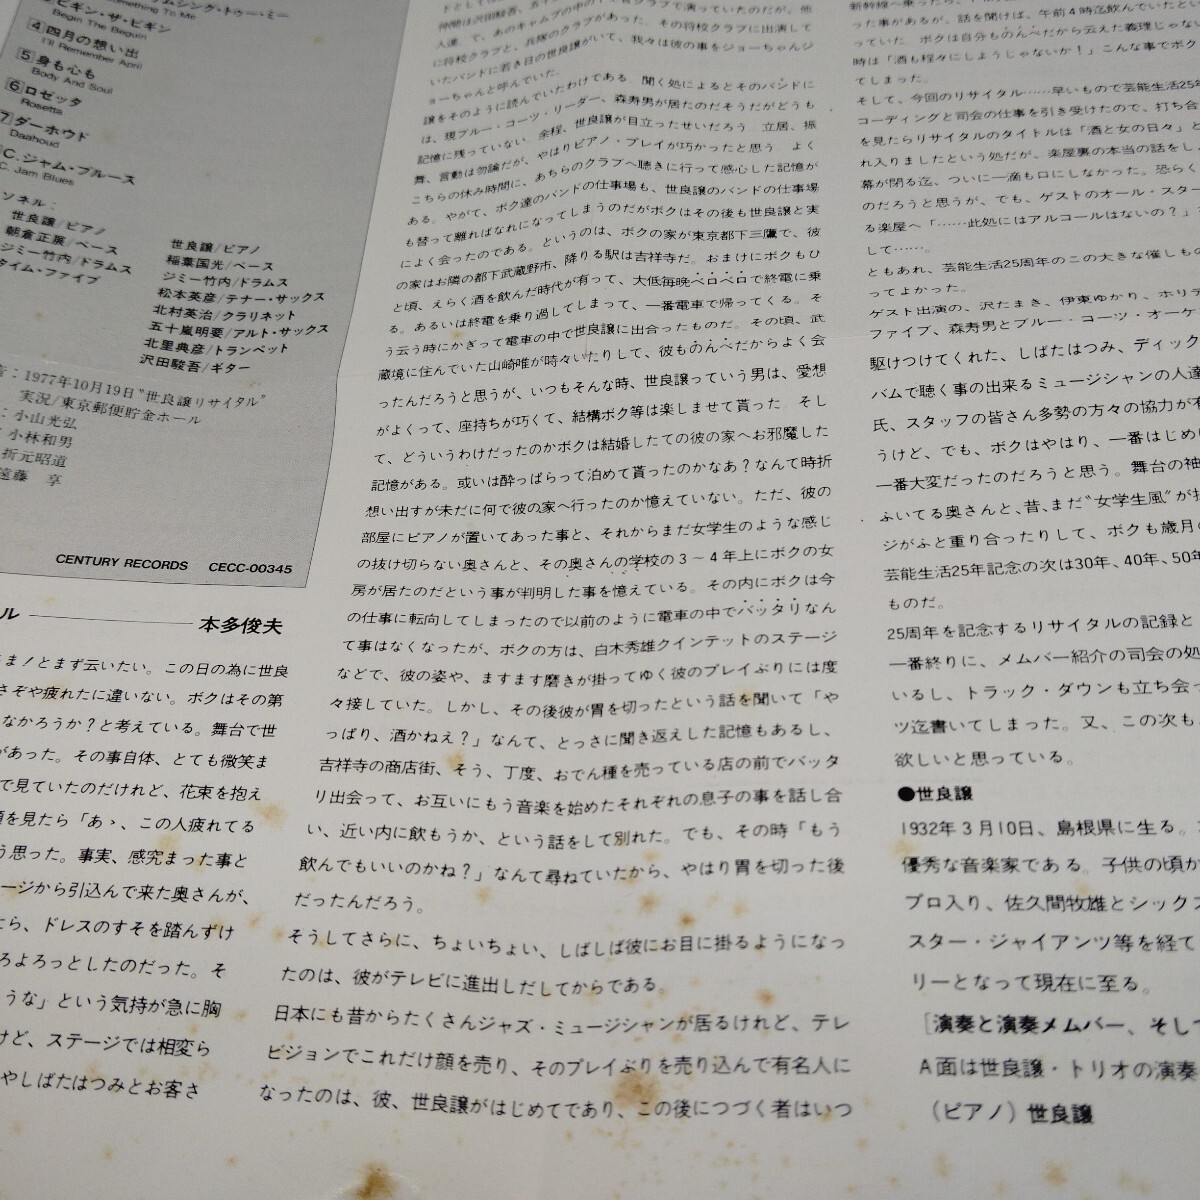 ムシング・トゥー・ミー
ething To Me
ビギン・ザ・ビギン
Begin The Beguin
4 四月の想い出
I'll Remember April
5 身も心も
Body And Soul
6 ロゼッタ
Rosetta
ダーホウド
Daahoud
C. ジャム・ブルース
C. Jam Blues
ソネル：
世良譲/ピアノ
朝倉正展/ベース
ジミー竹内/ドラムス
タイム・ファイブ
世良譲/ピアノ
稲葉国光/ベース
ジミー竹内/ドラムス
松本英彦/テナー・サックス
北村英治/クラリネット
五十嵐明要/アルト・サックス
北里典彦/トランペット
沢田駿吾/ギター
：1977年10月19日“世良譲リサイタル”
実況/東京郵便貯金ホール
：小山光弘
小林和男
折元昭道
遠藤　享
CENTURY RECORDS　CECC-00345
ル――― 本多俊夫
まノとまず云いたい。この日の為に世良
さぞや疲れたに違いない。ボクはその第
なかろうか？と考えている。舞台で世
があった。その事自体、とても微笑ま
で見ていたのだけれど、花束を抱え
顔を見たら「あゝ、この人疲れてる
う思った。事実、感究まった事と
ージから引込んで来た奥さんが、
たら、ドレスのすそを踏んずけ
ろよろっとしたのだった。そ
うな」という気持が急に胸
けど、ステージでは相変ら
やしばたはつみとお客さ
人達。で、あのキャンプの中の
に将校クラブと、兵隊のクラブがあった。その将校クラブに出演して
いたバンドに若き日の世良譲がいて、我々は彼の事をジョーちゃんジ
ョーちゃんと呼んでいた。
譲をそのように読んでいたわけである。聞く処によるとそのバンドに
は、現ブルー・コーツ・リーダー、森寿男が居たのだそうだがどうも
記憶に残っていない。余程、世良譲が目立ったせいだろう。立居、振
舞、言動は勿論だが、やはりピアノ・プレイが巧かったと思う。よく
こちらの休み時間に、あちらのクラブへ聴きに行って感心した記憶が
ある。やがて、ボク達のバンドの仕事場も、世良譲のバンドの仕事場
も替って離ればなれになってしまうのだがボクはその後も世良譲と実
によく会ったのである。というのは、ボクの家が東京都下三鷹で、彼
の家はお隣の都下武蔵野市、降りる駅は吉祥寺だ。おまけにボクもひ
と頃、えらく酒を飲んだ時代が有って、大低毎晩ベロベロで終電に乗
る。あるいは終電を乗り過してしまって、一番電車で帰ってくる。そ
う云う時にかぎって電車の中で世良譲に出合ったものだ。その頃、武
蔵境に住んでいた山崎唯が時々いたりして、彼ものんべだからよく会
ったんだろうと思うが、いつもそんな時、世良譲っていう男は、愛想
がよくって、座持ちが巧くて、結構ボク等は楽しませて貰った。そし
て、どういうわけだったのかボクは結婚したての彼の家へお邪魔した
記憶がある。或いは酔っぱらって泊めて貰ったのかなあ？なんて時折
想い出すが未だに何で彼の家へ行ったのか憶えていない。ただ、彼の
部屋にピアノが置いてあった事と、それからまだ女学生のような感じ
の抜け切らない奥さんと、その奥さんの学校の3～4年上にボクの女
房が居たのだという事が判明した事を憶えている。その内にボクは今
の仕事に転向してしまったので以前のように電車の中でバッタリなん
て事はなくなったが、ボクの方は、白木秀雄クインテットのステージ
などで、彼の姿や、ますます磨きが掛ってゆく彼のプレイぶりには度
々接していた。しかし、その後彼が胃を切ったという話を聞いて「や
っぱり、酒かねえ？」なんて、とっさに聞き返えした記憶もあるし、
吉祥寺の商店街、そう、丁度、おでん種を売っている店の前でバッタ
リ出会って、お互いにもう音楽を始めたそれぞれの息子の事を話し合
い、近い内に飲もうか、という話をして別れた。でも、その時「もう
飲んでもいいのかね？」なんて尋ねていたから、やはり胃を切った後
だったんだろう。
そうしてさらに、ちょいちょい、しばしば彼にお目に掛るようになっ
たのは、彼がテレビに進出しだしてからである。
日本にも昔からたくさんジャズ・ミュージシャンが居るけれど、テレ
ビジョンでこれだけ顔を売り、そのプレイぶりを売り込んで有名人に
なったのは、彼、世良譲がはじめてであり、この後につづく者はいつ
った事があるが、話を聞けば、午前4時迄飲んでいたとい
っていた。ボクは自分ものんべだから云えた義理じゃない
時は「酒も程々にしようじゃないか！」こんな事でボク
てしまった。
そして、今回のリサイタル……早いもので芸能生活25年
コーディングと司会の仕事を引き受けたので、打ち合
を見たらリサイタルのタイトルは「酒と女の日々」と
れ入りましたという処だが、楽屋裏の本当の話をし
幕が閉る迄、ついに一滴も口にしなかった。恐らく
のだろうと思うが、でも、ゲストのオール・スター
る楽屋へ「……此処にはアルコールはないの？」
して……。
ともあれ、芸能生活25周年のこの大きな催しもの
ってよかった。
ゲスト出演の、沢たまき、伊東ゆかり、ホリデ
ファイブ、森寿男とブルー・コーツ・オーケ
駆けつけてくれた、しばたはつみ、ディック
バムで聴く事の出来るミュージシャンの人達
氏、スタッフの皆さん多勢の方々の協力が有
うけど、でも、ボクはやはり、一番はじめ
一番大変だったのだろうと思う。舞台の袖
ふいてる奥さんと、昔、まだ“女学生風”が抜
ジがふと重り合ったりして、ボクも歳月の
芸能生活25年記念の次は30年、40年、50年
ものだ。
25周年を記念するリサイタルの記録と
一番終りに、メムバー紹介の司会の処
いるし、トラック・ダウンも立ち会っ
ツ迄書いてしまった。又、この次も
欲しいと思っている。
●世良譲
1932年3月10日、島根県に生る。
優秀な音楽家である。子供の頃か
プロ入り、佐久間牧雄とシックス
スター・ジャイアンツ等を経て
リーとなって現在に至る。
［演奏と演奏メムバー、そして
A面は世良譲・トリオの演奏
（ピアノ）世良譲